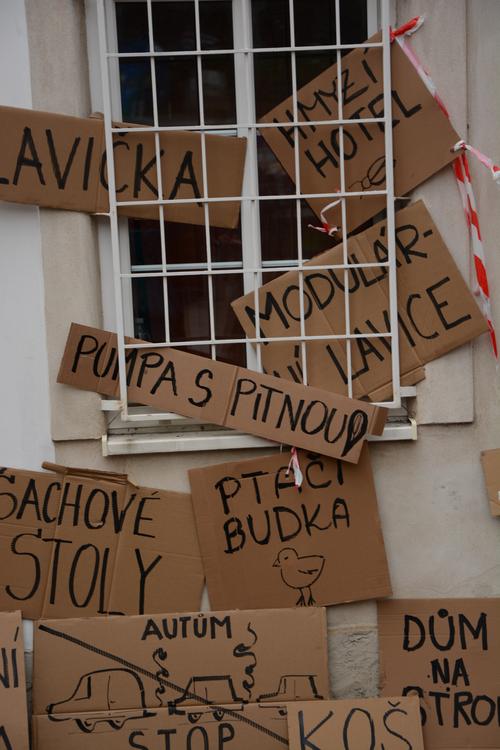 HMYZÍ
HOTEL
LAVIČKA
MODULÁR-
NÍ LAVICE
PUMPA S PITNOU
PTAČÍ
BUDKA
ŠACHOVÉ
STOLY
AUTŮM
STOP
NÍ
KOŠ
DŮM
NA
STRO